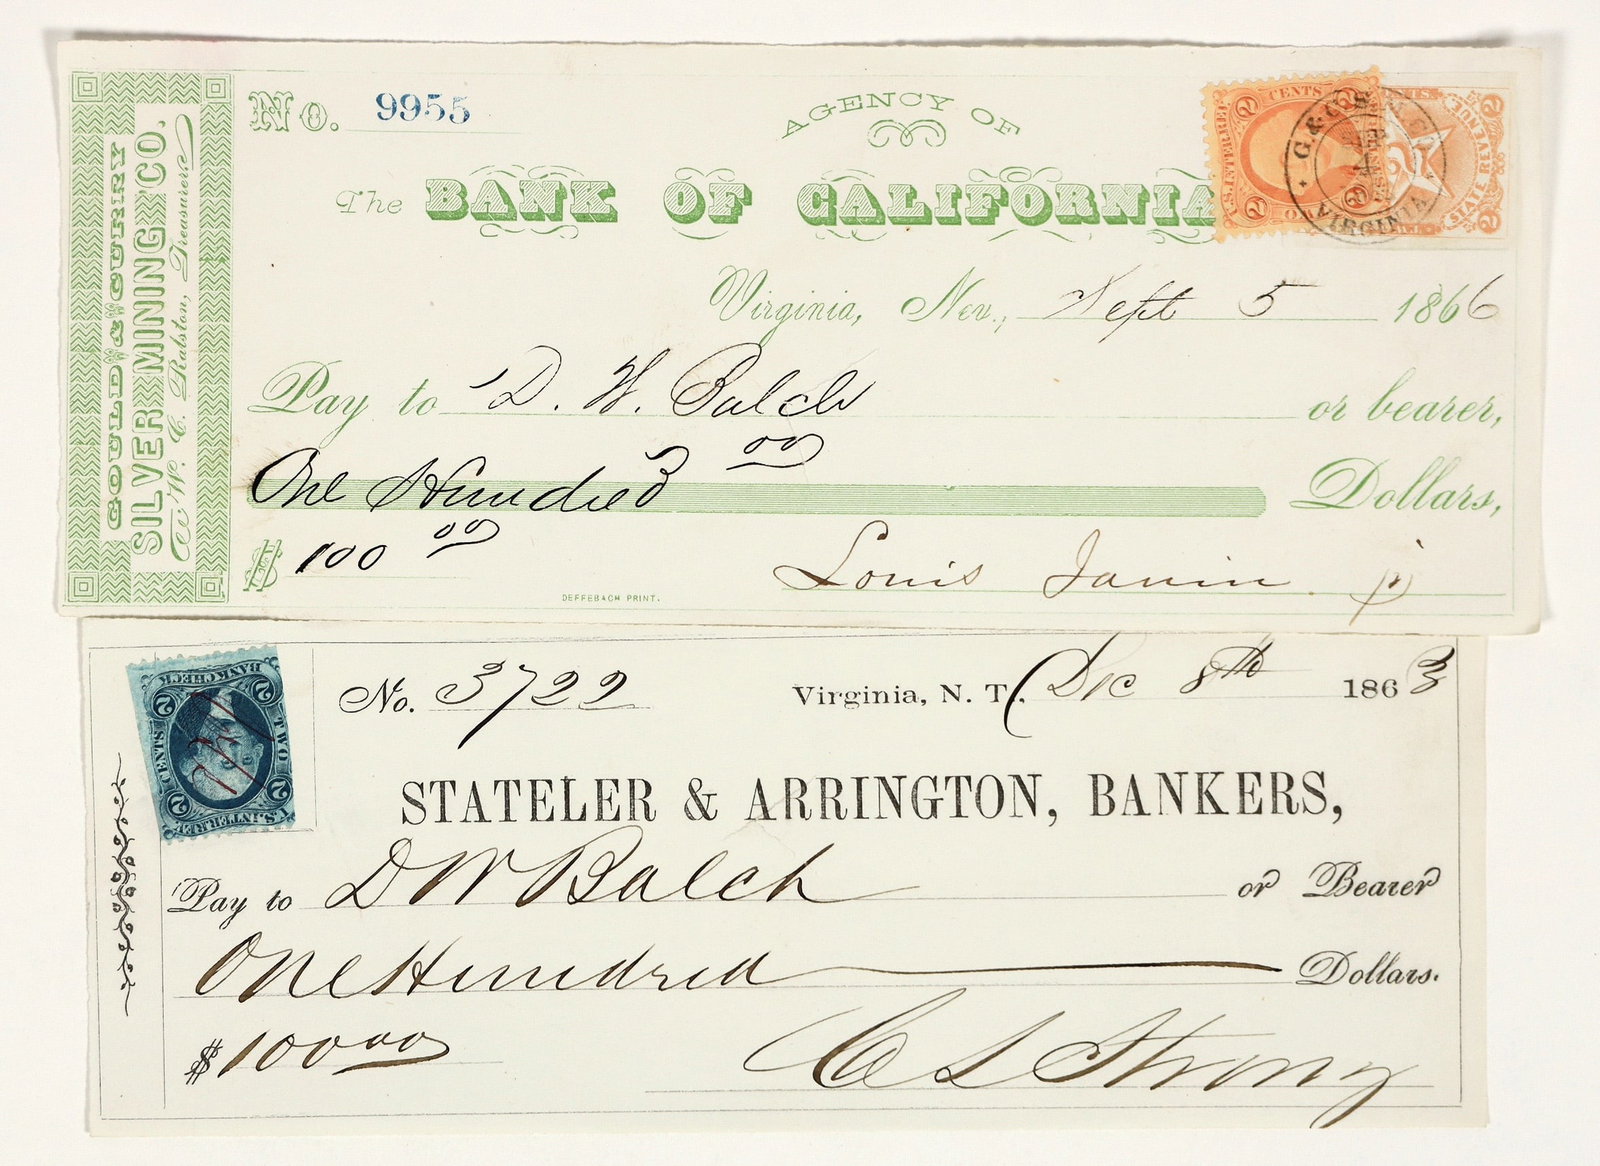 GOULD & CURRY
SILVER MINING CO.
W. C. Ralston, Treasurer
No. 9955
AGENCY OF
The BANK OF CALIFORNIA
Virginia, Nev., Sept 5 1866
Pay to D. W. Balch or bearer,
One Hundred 00 Dollars,
$ 100 00
Louis Janin jr
DEFFEBACH PRINT.
U.S. INTER. REV.
CENTS
2
G. & C. S. M. CO.
VIRGINIA
STATE REVENUE
2
No. 3722
Virginia, N. T., Dec 8th 1863
STATELER & ARRINGTON, BANKERS,
Pay to D W Balch or Bearer
One Hundred Dollars.
$ 100 00
C L Strong
BANK CHECK
2 TWO CENTS 2
U.S. INTER. REV.